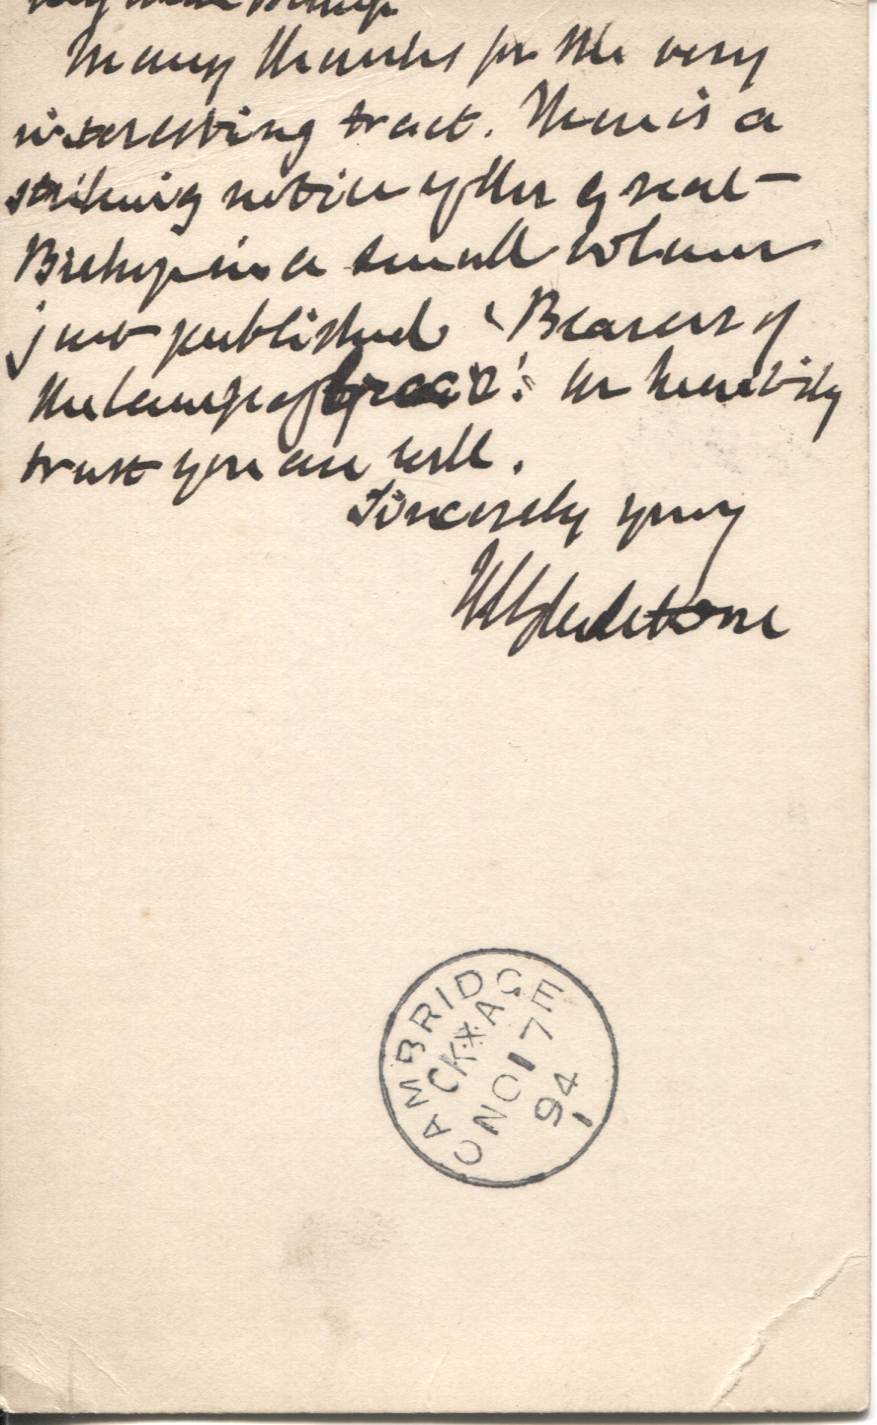 My dear Bishop
Many thanks for the very
interesting tract. There is a
striking notice of the great
Bishop in a small volume
just published 'Bearers of
the lamp of Grace'. We heartily
trust you are well.
Sincerely yours
WEGladstone
CAMBRIDGE
CK A
NO 17
94
1